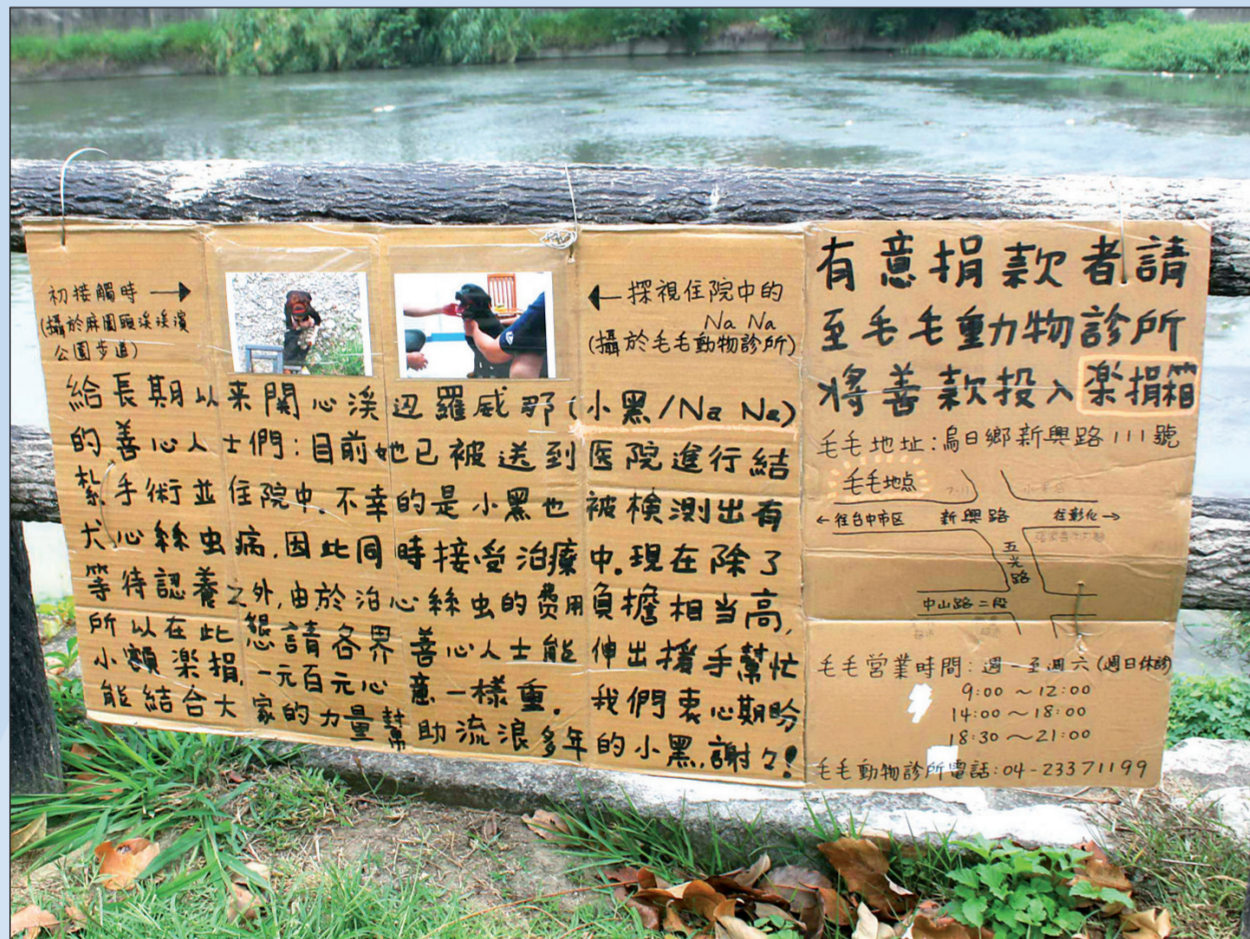 初接觸時 →
(攝於麻園頭溪溪濱
公園步道)
← 探視住院中的
Na Na
(攝於毛毛動物診所)
給長期以来関心溪辺羅威那(小黑/Na Na)
的善心人士們:目前她已被送到医院進行結
紮手術並住院中.不幸的是小黑也被検測出有
犬心絲虫病,因此同時接受治療中.現在除了
等待認養之外,由於治心絲虫的费用負擔相当高,
所以在此懇請各界善心人士能伸出援手幫忙
小額楽捐,一元百元心意一様重。我們衷心期盼
能結合大家的力量幫助流浪多年的小黑,謝々!
有意捐款者請
至毛毛動物診所
將善款投入楽捐箱
毛毛地址:烏日鄉新興路111號
毛毛地点
←往台中市区 新興路 往彰化→
五光路
中山路二段
毛毛営業時間:週一至週六(週日休診)
9:00~12:00
14:00~18:00
18:30~21:00
毛毛動物診所電話:04-23371199